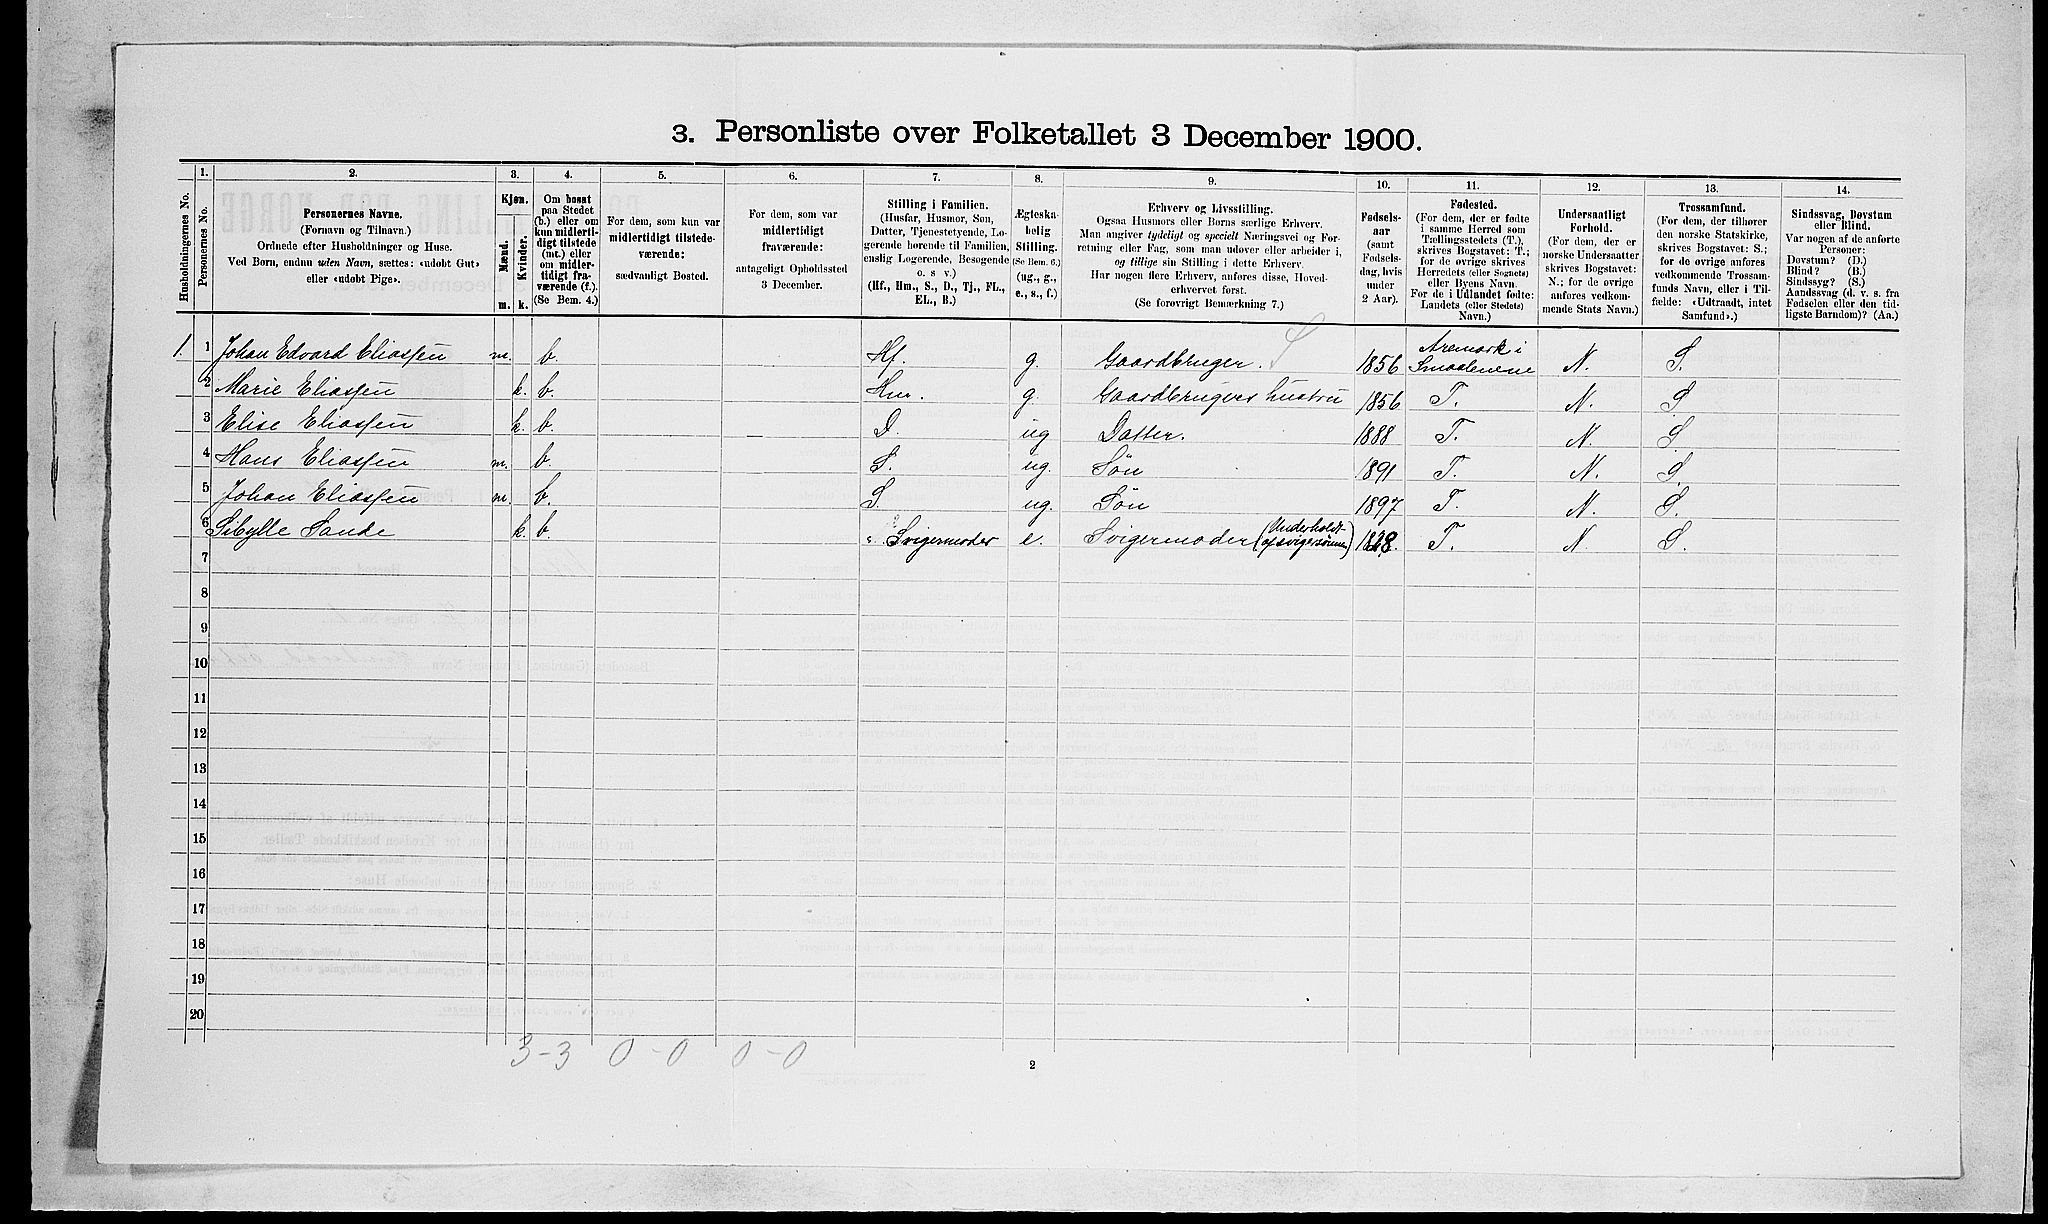 3. Personliste over Folketallet 3 December 1900.
Husholdningernes No.
1.
Personernes No.
2.
Personernes Navne.
(Fornavn og Tilnavn.)
Ordnede efter Husholdninger og Huse.
Ved Børn, endnu uden Navn, sættes: «udøbt Gut»
eller «udøbt Pige».
3.
Kjøn.
Mænd.
Kvinder.
m. k.
4.
Om bosat
paa Stedet
(b.) eller om
kun midlerti-
digt tilstede
(mt.) eller
om midler-
tidigt fra-
værende (f.).
(Se Bem. 4.)
5.
For dem, som kun var
midlertidigt tilstede-
værende:
sædvanligt Bosted.
6.
For dem, som var
midlertidigt
fraværende:
antageligt Opholdssted
3 December.
7.
Stilling i Familien.
(Husfar, Husmor, Søn,
Datter, Tjenestetyende, Lo-
gerende hørende til Familien,
enslig Logerende, Besøgende
o. s v.)
(Hf., Hm., S., D., Tj., FL.,
EL., B.)
8.
Ægteska-
belig
Stilling.
(Se Bem. 6.)
(ug., g.,
e., s., f.)
9.
Erhverv og Livsstilling.
Ogsaa Husmors eller Børns særlige Erhverv.
Man angiver tydeligt og specielt Næringsvei og For-
retning eller Fag, som man udøver eller arbeider i,
og tillige sin Stilling i dette Erhverv.
Har nogen flere Erhverv, anføres disse, Hoved-
erhvervet først.
(Se forøvrigt Bemærkning 7.)
10.
Fødsels-
aar
(samt
Fødsels-
dag, hvis
under
2 Aar).
11.
Fødested.
(For dem, der er fødte
i samme Herred som
Tællingsstedets (T.),
skrives Bogstavet: T.;
for de øvrige skrives
Herredets (eller Sognets)
eller Byens Navn.
For de i Udlandet fødte:
Landets (eller Stedets)
Navn.)
12.
Undersaatligt
Forhold.
(For dem, der er
norske Undersaatter
skrives Bogstavet:
N.; for de øvrige
anføres vedkom-
mende Stats Navn.)
13.
Trossamfund.
(For dem, der tilhører
den norske Statskirke,
skrives Bogstavet: S.;
for de øvrige anføres
vedkommende Trossam-
funds Navn, eller i Til-
fælde: «Udtraadt, intet
Samfund».)
14.
Sindssvag, Døvstum
eller Blind.
Var nogen af de anførte
Personer:
Døvstum? (D.)
Blind? (B.)
Sindssyg? (S.)
Aandssvag (d. v. s. fra
Fødselen eller den tid-
ligste Barndom)? (Aa.)
1. 1 Johan Edvard Eliassen m. b. Hf. g. Gaardbruger. S 1856 Aremark i Smaalenene N. S.
2 Marie Eliassen k. b. Hm. g. Gaardbrugers hustru 1856 T. N. S
3 Elise Eliassen k. b. D. ug Datter. 1888 T. N. S.
4 Hans Eliassen m. b. S. ug. Søn 1891 T. N. S.
5 Johan Eliassen m. b. S. ug. Søn 1897 T. N. S.
6 Sibylle Sande k. b. Svigermoder e. Svigermoder (Underholdt af svigersønnen) 1828. T. N. S.
7
8
9
10
11
12
13
14
15
16
17
18
19
20
3-3 0-0 0-0
2